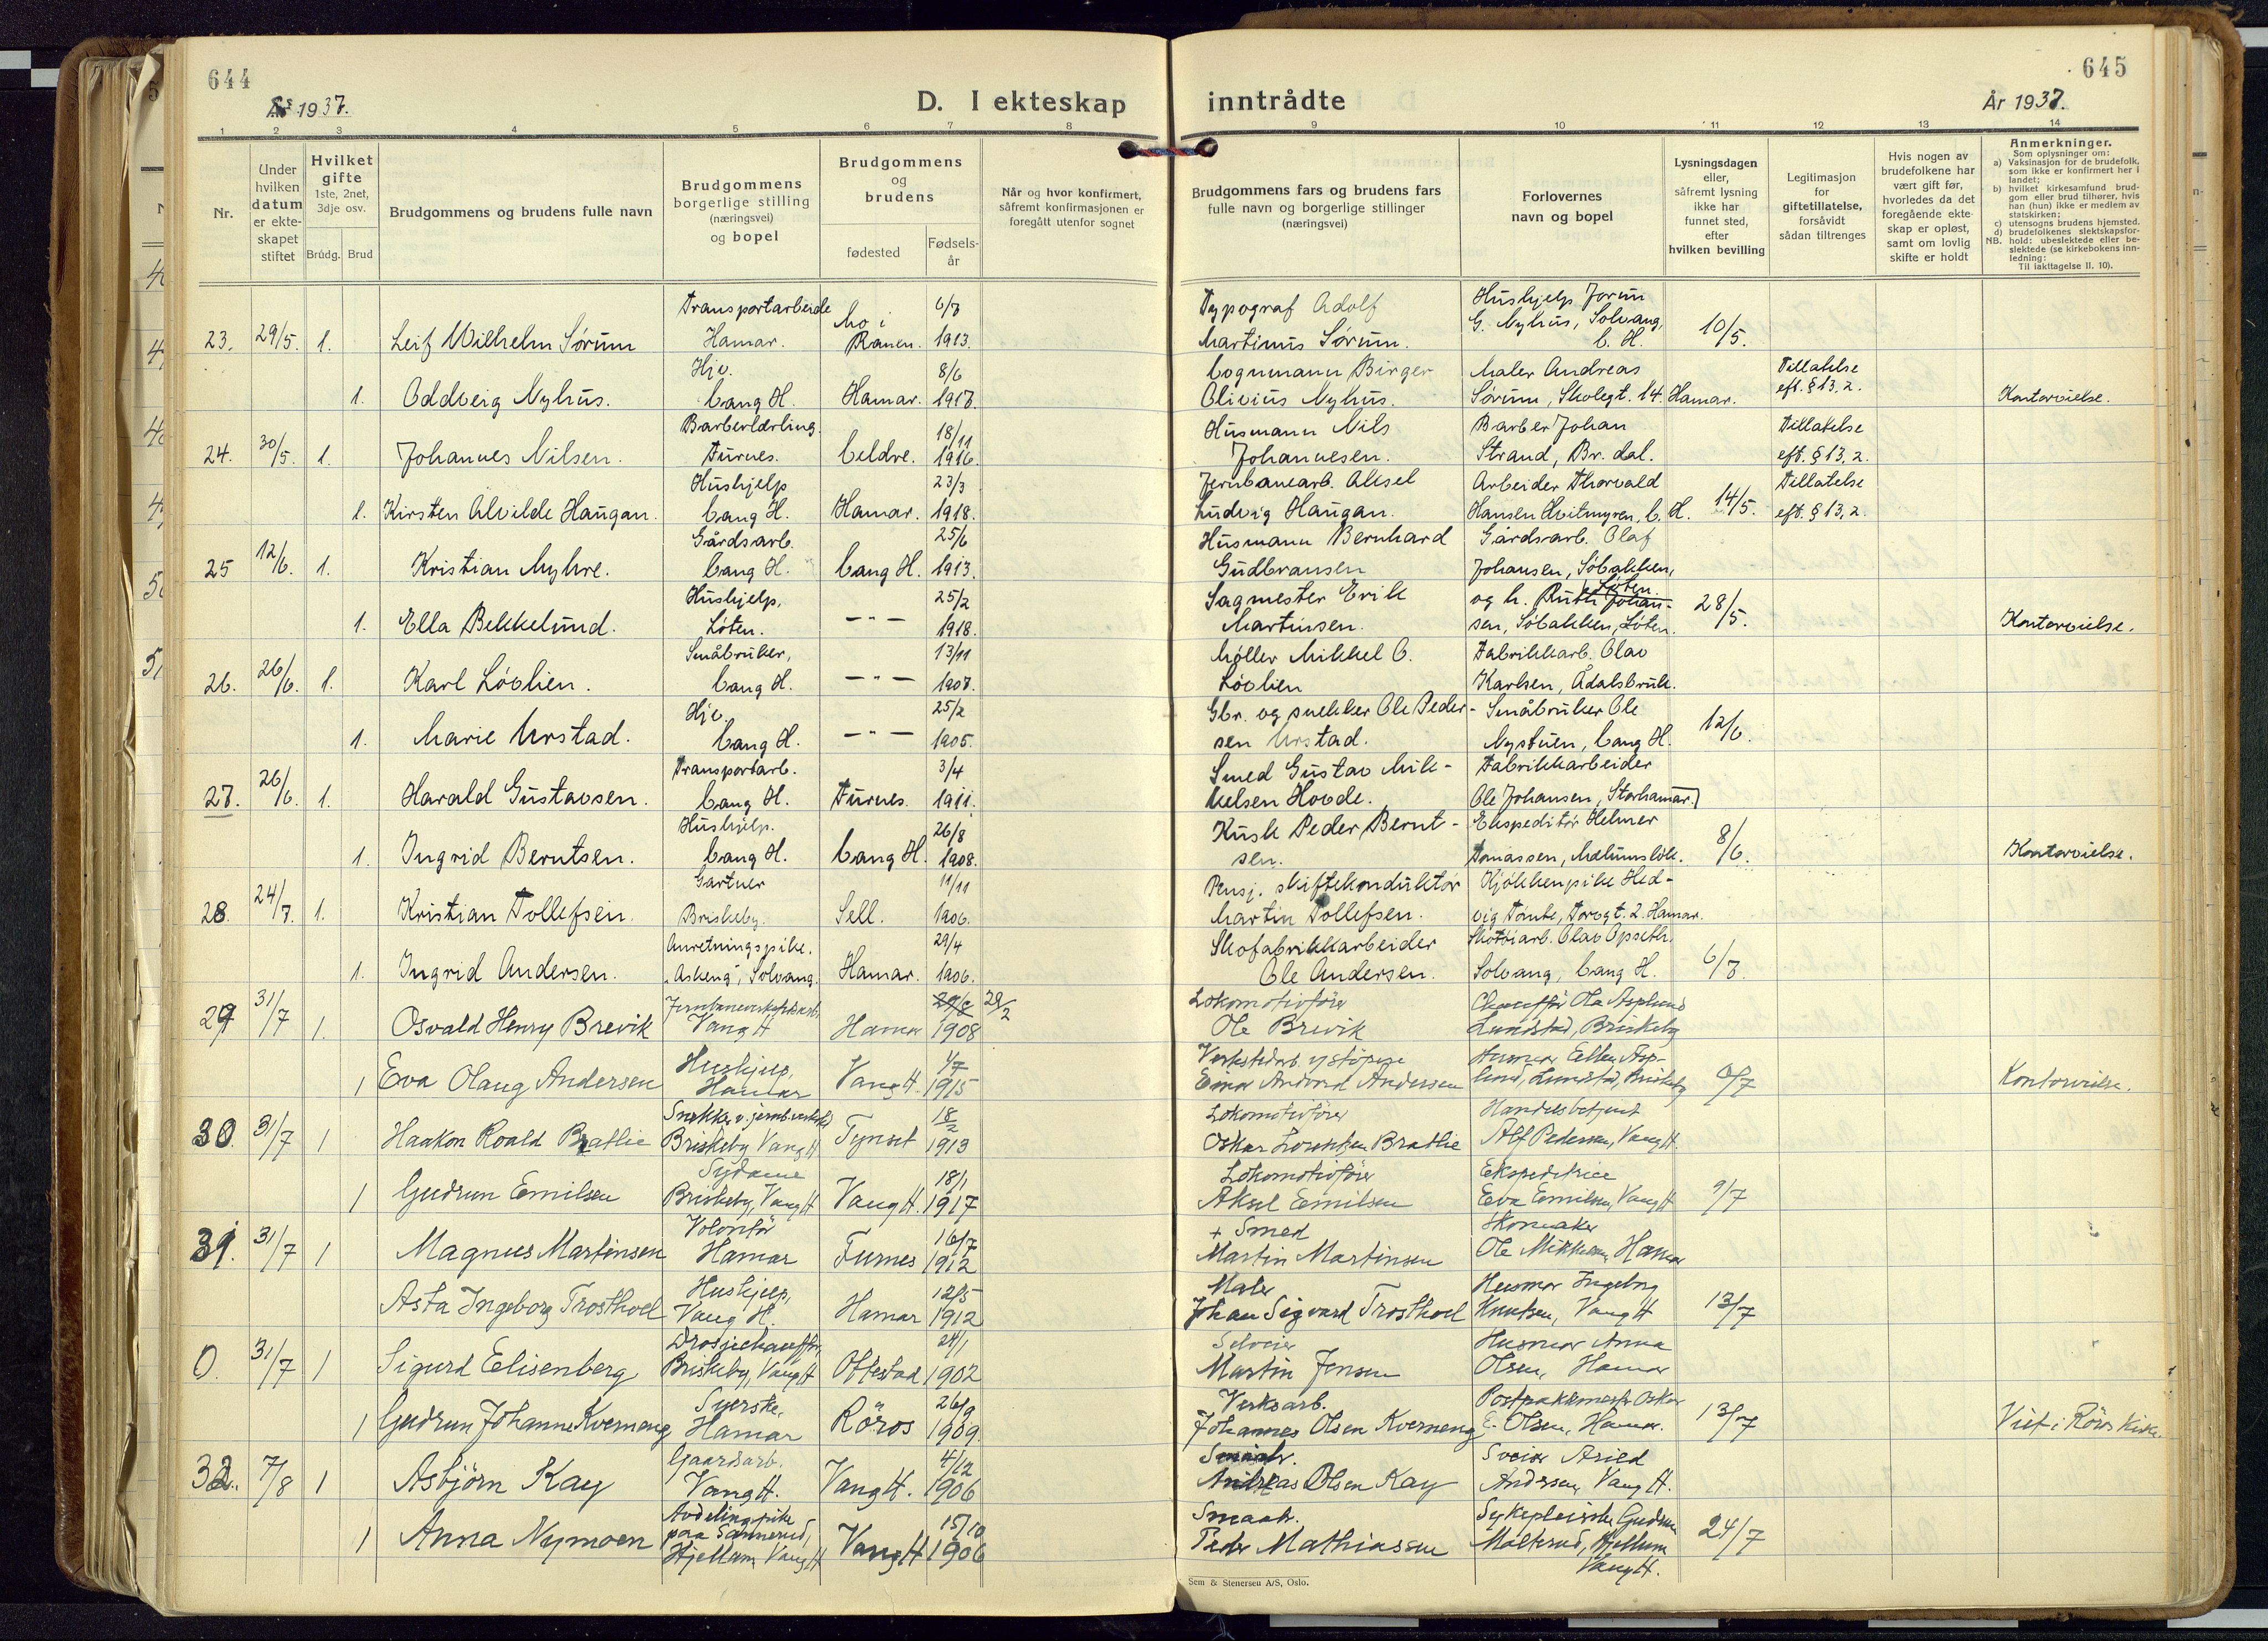 644
År 1937.
D. I ekteskap
inntrådte
645
År 1937.
1 2 3 4 5 6 7 8 9 10 11 12 13 14
Nr.
Under hvilken datum er ekteskapet stiftet
Hvilket gifte
1ste, 2net, 3dje osv.
Brudg. Brud
Brudgommens og brudens fulle navn
Brudgommens borgerlige stilling (næringsvei) og bopel
Brudgommens og brudens
fødested
Fødselsår
Når og hvor konfirmert, såfremt konfirmasjonen er foregått utenfor sognet
Brudgommens fars og brudens fars fulle navn og borgerlige stillinger (næringsvei)
Forlovernes navn og bopel
Lysningsdagen eller, såfremt lysning ikke har funnet sted, efter hvilken bevilling
Legitimasjon for giftetillatelse, forsåvidt sådan tiltrenges
Hvis nogen av brudefolkene har vært gift før, hvorledes da det foregående ekteskap er opløst, samt om lovlig skifte er holdt
Anmerkninger.
Som oplysninger om:
a) Vaksinasjon for de brudefolk, som ikke er konfirmert her i landet;
b) hvilket kirkesamfund brudgom eller brud tilhører, hvis han (hun) ikke er medlem av statskirken;
c) utensogns brudens hjemsted.
d) brudefolkenes slektskapsforhold: ubeslektede eller beslektede (se kirkebokens innledning:
NB.
Til iakttagelse II. 10).
23. 29/5. 1. Leif Wilhelm Sørum Transportarbeide Hamar. Mo i Ranen. 6/7 1913. Typograf Adolf Martinus Sørum. Hushjelp Jorun G. Nyhus, Solvang, V. H. 10/5.
1. Oddveig Nyhus. Hjv. Vang H. Hamar. 8/6 1917. Vognmann Birger Olivius Nyhus. Maler Andreas Sørum, Skolegt. 14. Hamar. Tillatelse eft. § 13, 2. Kontorvielse.
24. 30/5. 1. Johannes Nilsen. Barberlærling. Furnes. Veldre. 18/11 1916. Husmann Nils Johannesen. Barber Johan Strand, Br. dal. Tillatelse eft. § 13, 2.
1. Kirsten Alvilde Haugan. Hushjelp Vang H. Hamar. 23/3 1918. Jernbanearb. Aksel Ludvig Haugan. Arbeider Thorvald Hansen Hvitmyren, V. H. 14/5. Tillatelse eft. § 13, 2.
25 12/6. 1. Kristian Myhre. Gårdsarb. Vang H. Vang H. 25/6 1913. Husmann Bernhard Gudbransen Gårdsarb. Olaf Johansen, Søbakken, Løten
1. Ella Bekkelund. Hushjelp, Løten. -"- 25/2 1918. Sagmester Erik Martinsen. og h. Ruth Johansen, Søbakken, Løten. 28/5. Kontorvielse.
26. 26/6. 1. Karl Løvlien. Småbruker, Vang H. -"- 13/11 1907. Møller Mikkel O. Løvlien Fabrikkarb. Olav Karlsen, Ådalsbruk.
1. Marie Urstad. Hjv. Vang H. -"- 25/2 1905. Gbr. og snekker Ole Pedersen Urstad. Småbruker Ole Nystuen, Vang H. 12/6.
27. 26/6. 1. Harald Gustavsen. Transportarb. Vang H. Furnes. 3/4 1911. Smed Gustav Mikkelsen Hovde. Fabrikkarbeider Ole Johansen, Storhamar.
1. Ingrid Berntsen. Hushjelp. Vang H. Vang H. 26/8 1908. Kusk Peder Berntsen. Ekspeditør Helmer Tomassen, Mælumsløk. 8/6. Kontorvielse.
28. 24/7. 1. Kristian Tollefsen. Gartner Briskeby. Sell. 11/11 1906. Pensj. skiftekonduktør Martin Tollefsen. Kjøkkenpike Hedvig Tomte, Torvgt. 2. Hamar.
1. Ingrid Andersen. Anretningspike. "Askeng", Solvang. Hamar. 29/4 1906. Skofabrikkarbeider Ole Andersen. Skotøiarb. Olav Opseth. Solvang, Vang H. 6/7.
29 31/7 1. Osvald Henry Brevik Vang H Hamar 29/2 1908 Lokomotivfører Ole Brevik Chauffør Ola Asplund Lundstad, Briskeby
1 Eva Olaug Andersen Hushjelp, Hamar Vang H. 4/7 1915 Einar Andersen Husmor Ellen Asplund, Lundstad, Briskeby 6/7 Kontorvielse.
30 31/7 1 Haakon Roald Bratlie Snekker v. jernb.verksted Briskeby Vang H Tynset 18/2 1913 Lokomotivfører Oskar Lorentzen Bratlie Handelsbetjent Alf Pedersen, Vang H.
1 Gudrun Emilsen Sydame Briskeby, Vang H Vang H. 18/1 1917 Lokomotivfører Aksel Emilsen Ekspeditrice Eva Emilsen, Vang H 9/7
31. 31/7 1 Magnus Martinsen Volontør Hamar Furnes 16/7 1912 + Smed Martin Martinsen Skomaker Ole Mikkelsen, Hamar
Asta Ingeborg Trosthoel Hushjelp, Vang H. Hamar 12/5 1912 Maler Johan Sigvard Trosthoel Husmor Ingeborg Knutsen, Vang H 13/7
0. 31/7 1 Sigurd Elisenberg Drosjechauffør, Briskeby, Vang H Ottestad 24/1 1902 Selveier Martin Jensen Husmor Anna Olsen, Hamar
1 Gudrun Johanne Kverneng Syerske, Hamar Röros 26/9 1909. Verksarb. Johannes Olsen Kverneng Postpakkmester Oskar E. Olsen, Hamar. 13/7 Viet i Röros Kirke.
32. 7/8 1 Asbjörn Kay Gaardsarb. Vang H. Vang H. 4/12 1906 Smaabr. Andreas Olsen Kay Andersen, Vang H.
1 Anna Nymoen Avdelingspike paa Sannerud, Hjellum Vang H Vang H 15/10 1906 Smaabr. Peder Mathiassen Sykepleierske Gudrun Molterud, Hjellum Vang H. 24/7
Sem & Stenersen A/S, Oslo.